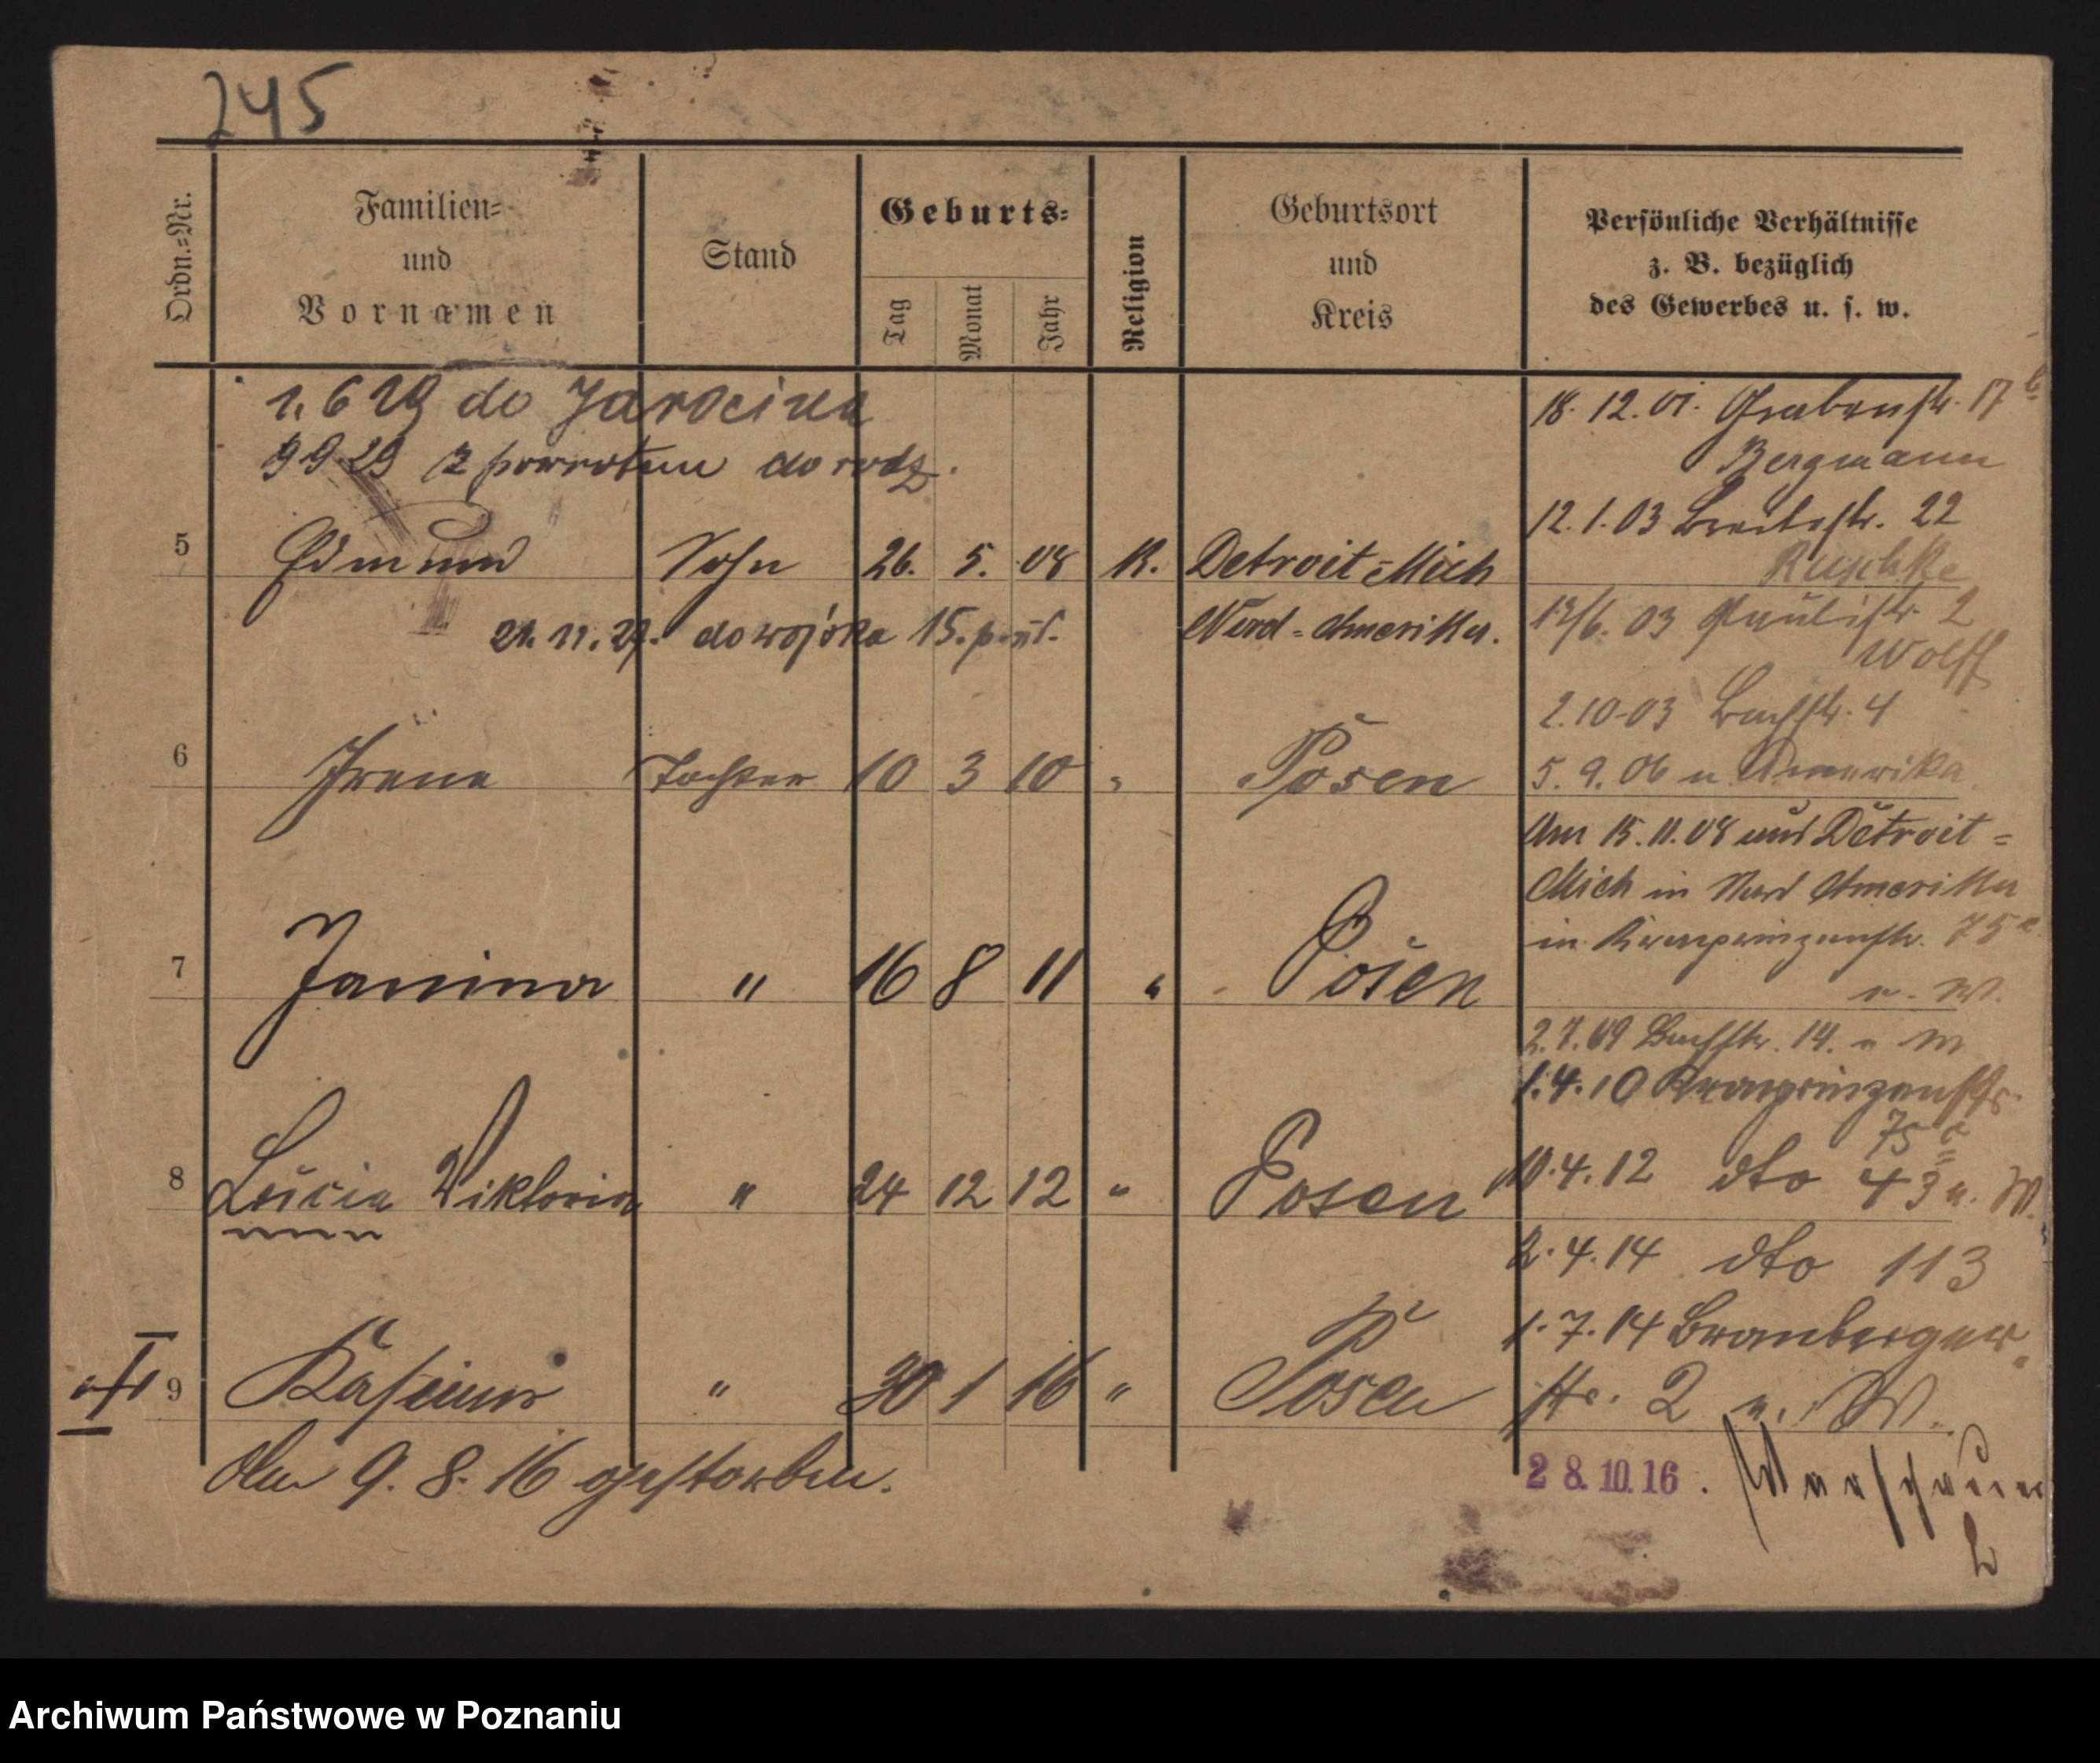 245
Ordn.=Nr.
Familien=
und
Vornamen
Stand
Geburts=
Tag
Monat
Jahr
Religion
Geburtsort
und
Kreis
Persönliche Verhältnisse
z. B. bezüglich
des Gewerbes u. s. w.
1. 6 29 do Jarocina
9 9 29 z powrotem do rodz.
5 Edmund Sohn 26. 5. 08 K. Detroit=Mich
Nord=Amerika.
21. 11. 29. do wojska 15.
6 Irene Tochter 10 3 10 " Posen
7 Janina " 16 8 11 " Posen
8 Lucia Viktoria " 24 12 12 " Posen
9 Kasimir " 30 1 16 " Posen
Am 9. 8. 16 gestorben.
18. 12. 01. Grabenstr. 17 b
Bergmann
12. 1. 03 Breitestr. 22
Ruschke
13/6. 03 Paulistr. 2
Wolff
2. 10. 03 Bachstr. 4
5. 9. 06 n. Amerika
Am 15. 11. 08 aus Detroit=
Mich in Nord Amerika
in Kronprinzenstr. 75 a
u. W.
2. 7. 09 Bachstr. 14.
1. 4. 10 Kronprinzenstr.
75 a
10. 4. 12 dto 43 u. W.
2. 4. 14 dto 113
1. 7. 14 Cranberger
str. 2 u. W.
28. 10. 16. Warschauer
2
Archiwum Państwowe w Poznaniu